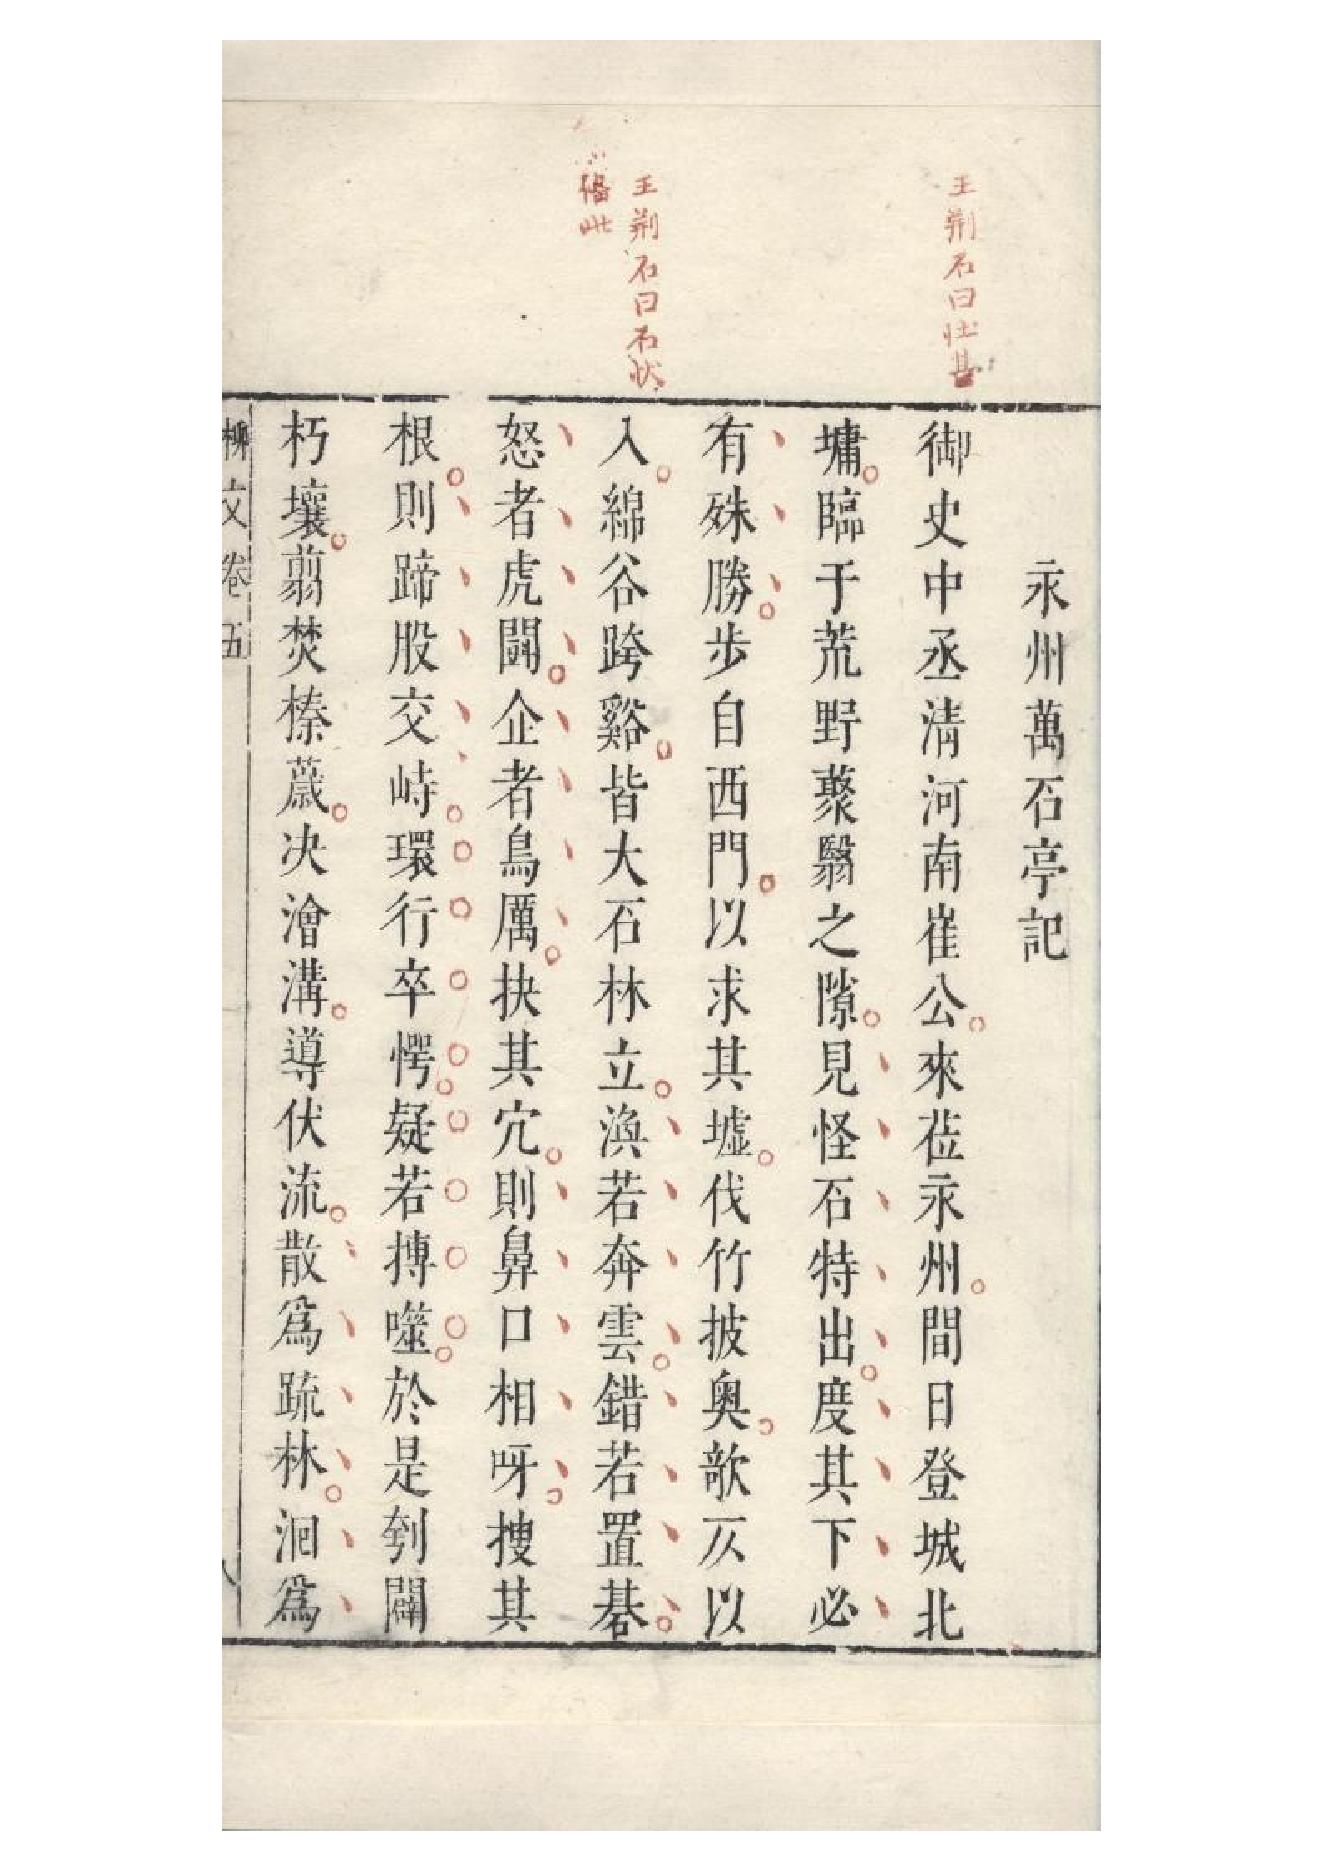 王荊石曰壯甚
王荊石曰石狀
永州萬石亭記
御史中丞淸河南崔公來莅永州間日登城北
墉臨于荒野藂翳之隙見怪石特出度其下必
有殊勝步自西門以求其墟伐竹披奧欹仄以
入綿谷跨谿皆大石林立渙若奔雲錯若置碁
怒者虎鬭企者鳥厲抉其穴則鼻口相呀搜其
根則蹄股交峙環行卒愕疑若搏噬於是刳闢
朽壤翦焚榛薉决澮溝導伏流散爲疏林洄爲
柳文卷五